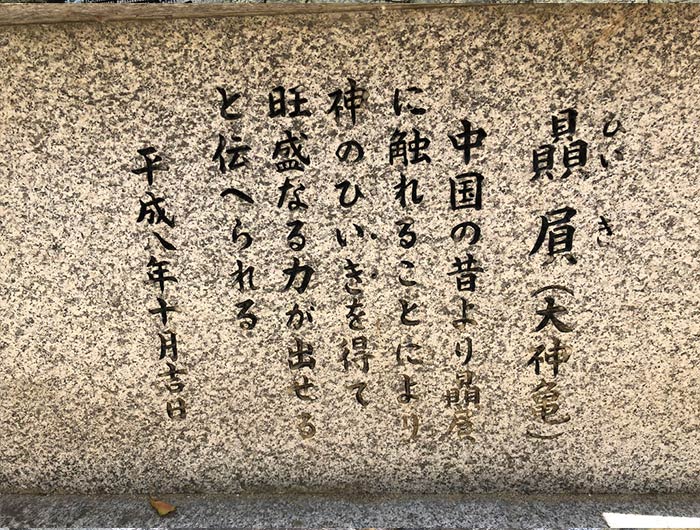 ひいき
贔屓(大神亀)
中国の昔より贔屓
に触れることにより
神のひいきを得て
旺盛なる力が出せる
と伝へられる
平成八年十月吉日